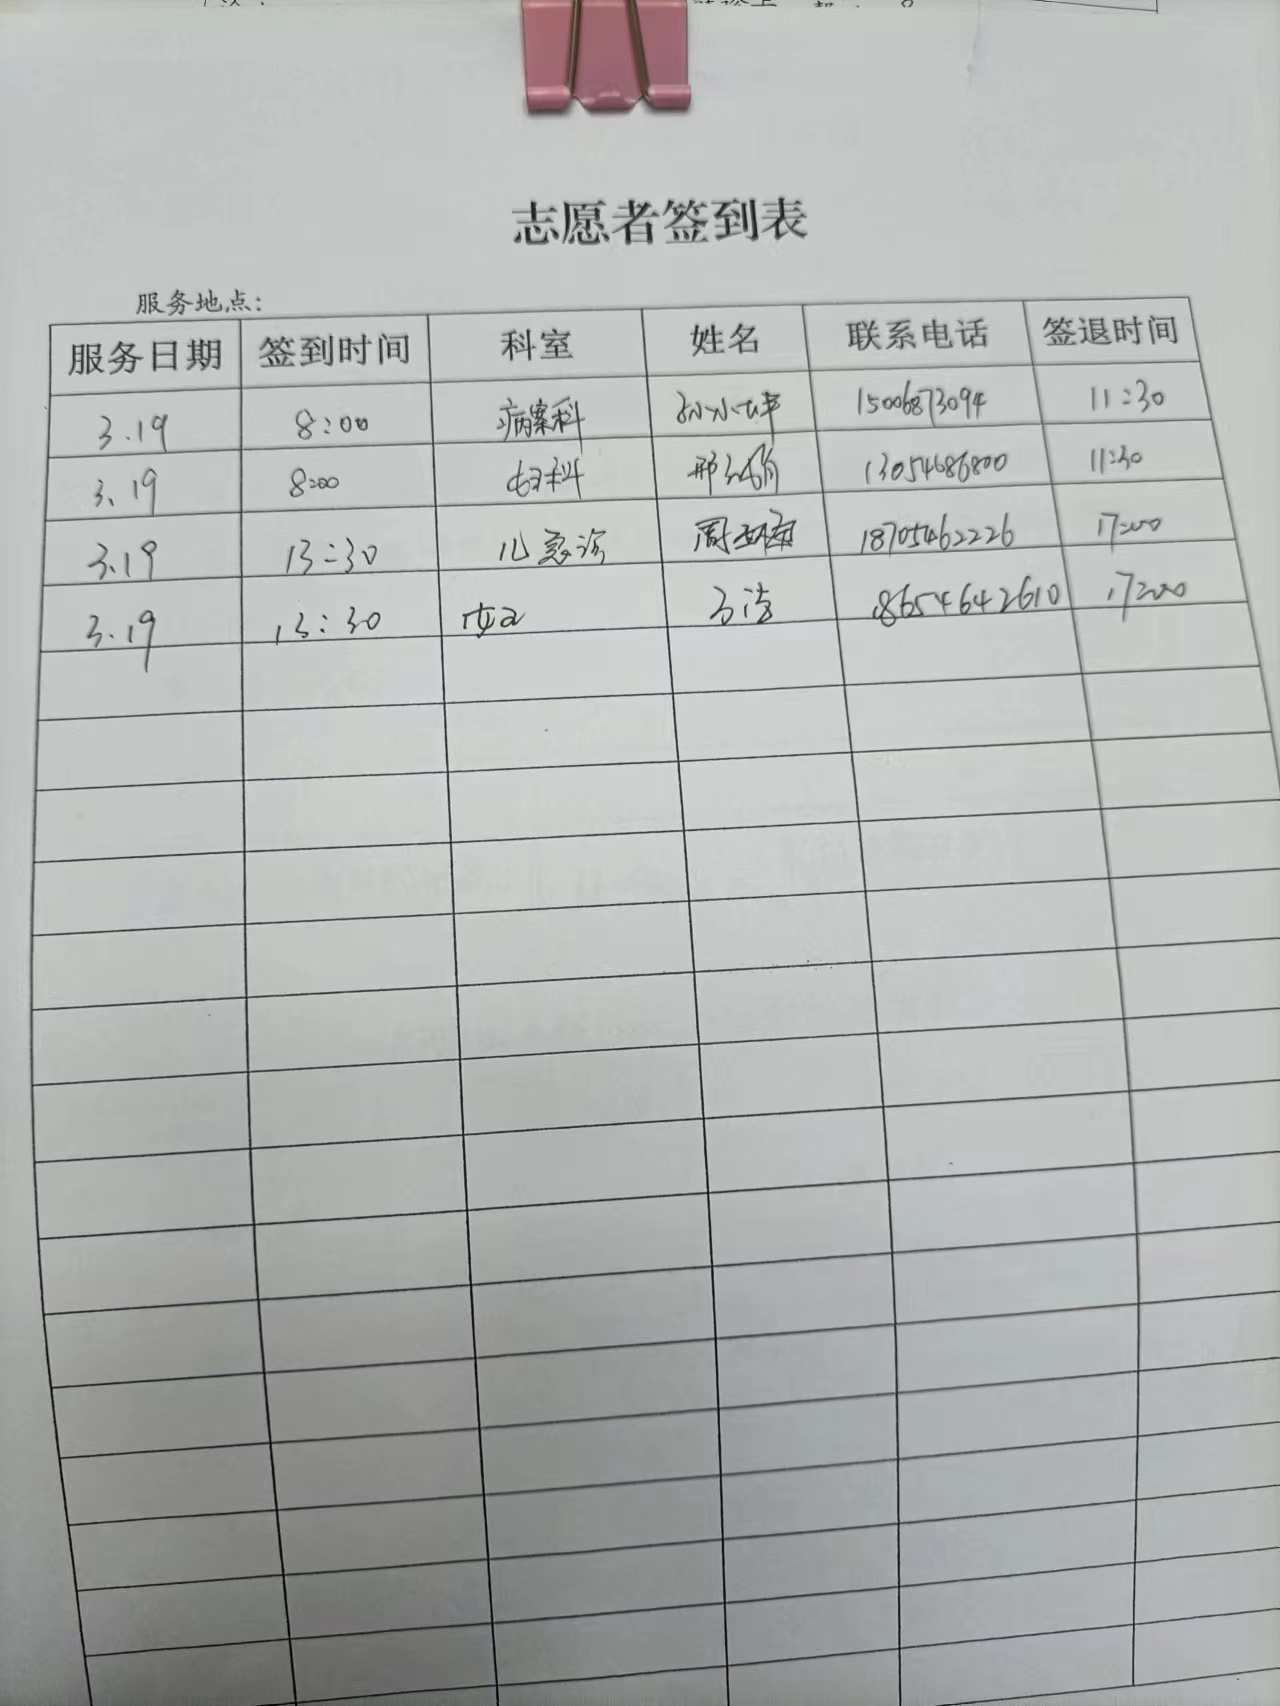 志愿者签到表
服务地点:
服务日期 签到时间 科室 姓名 联系电话 签退时间
3.19 8:00 病案科 15006873094 11:30
3.19 8:00 妇科 13054686800 11:30
3.19 13:30 儿急诊 18705462226 17:00
3.19 13:30 18654642610 17:00